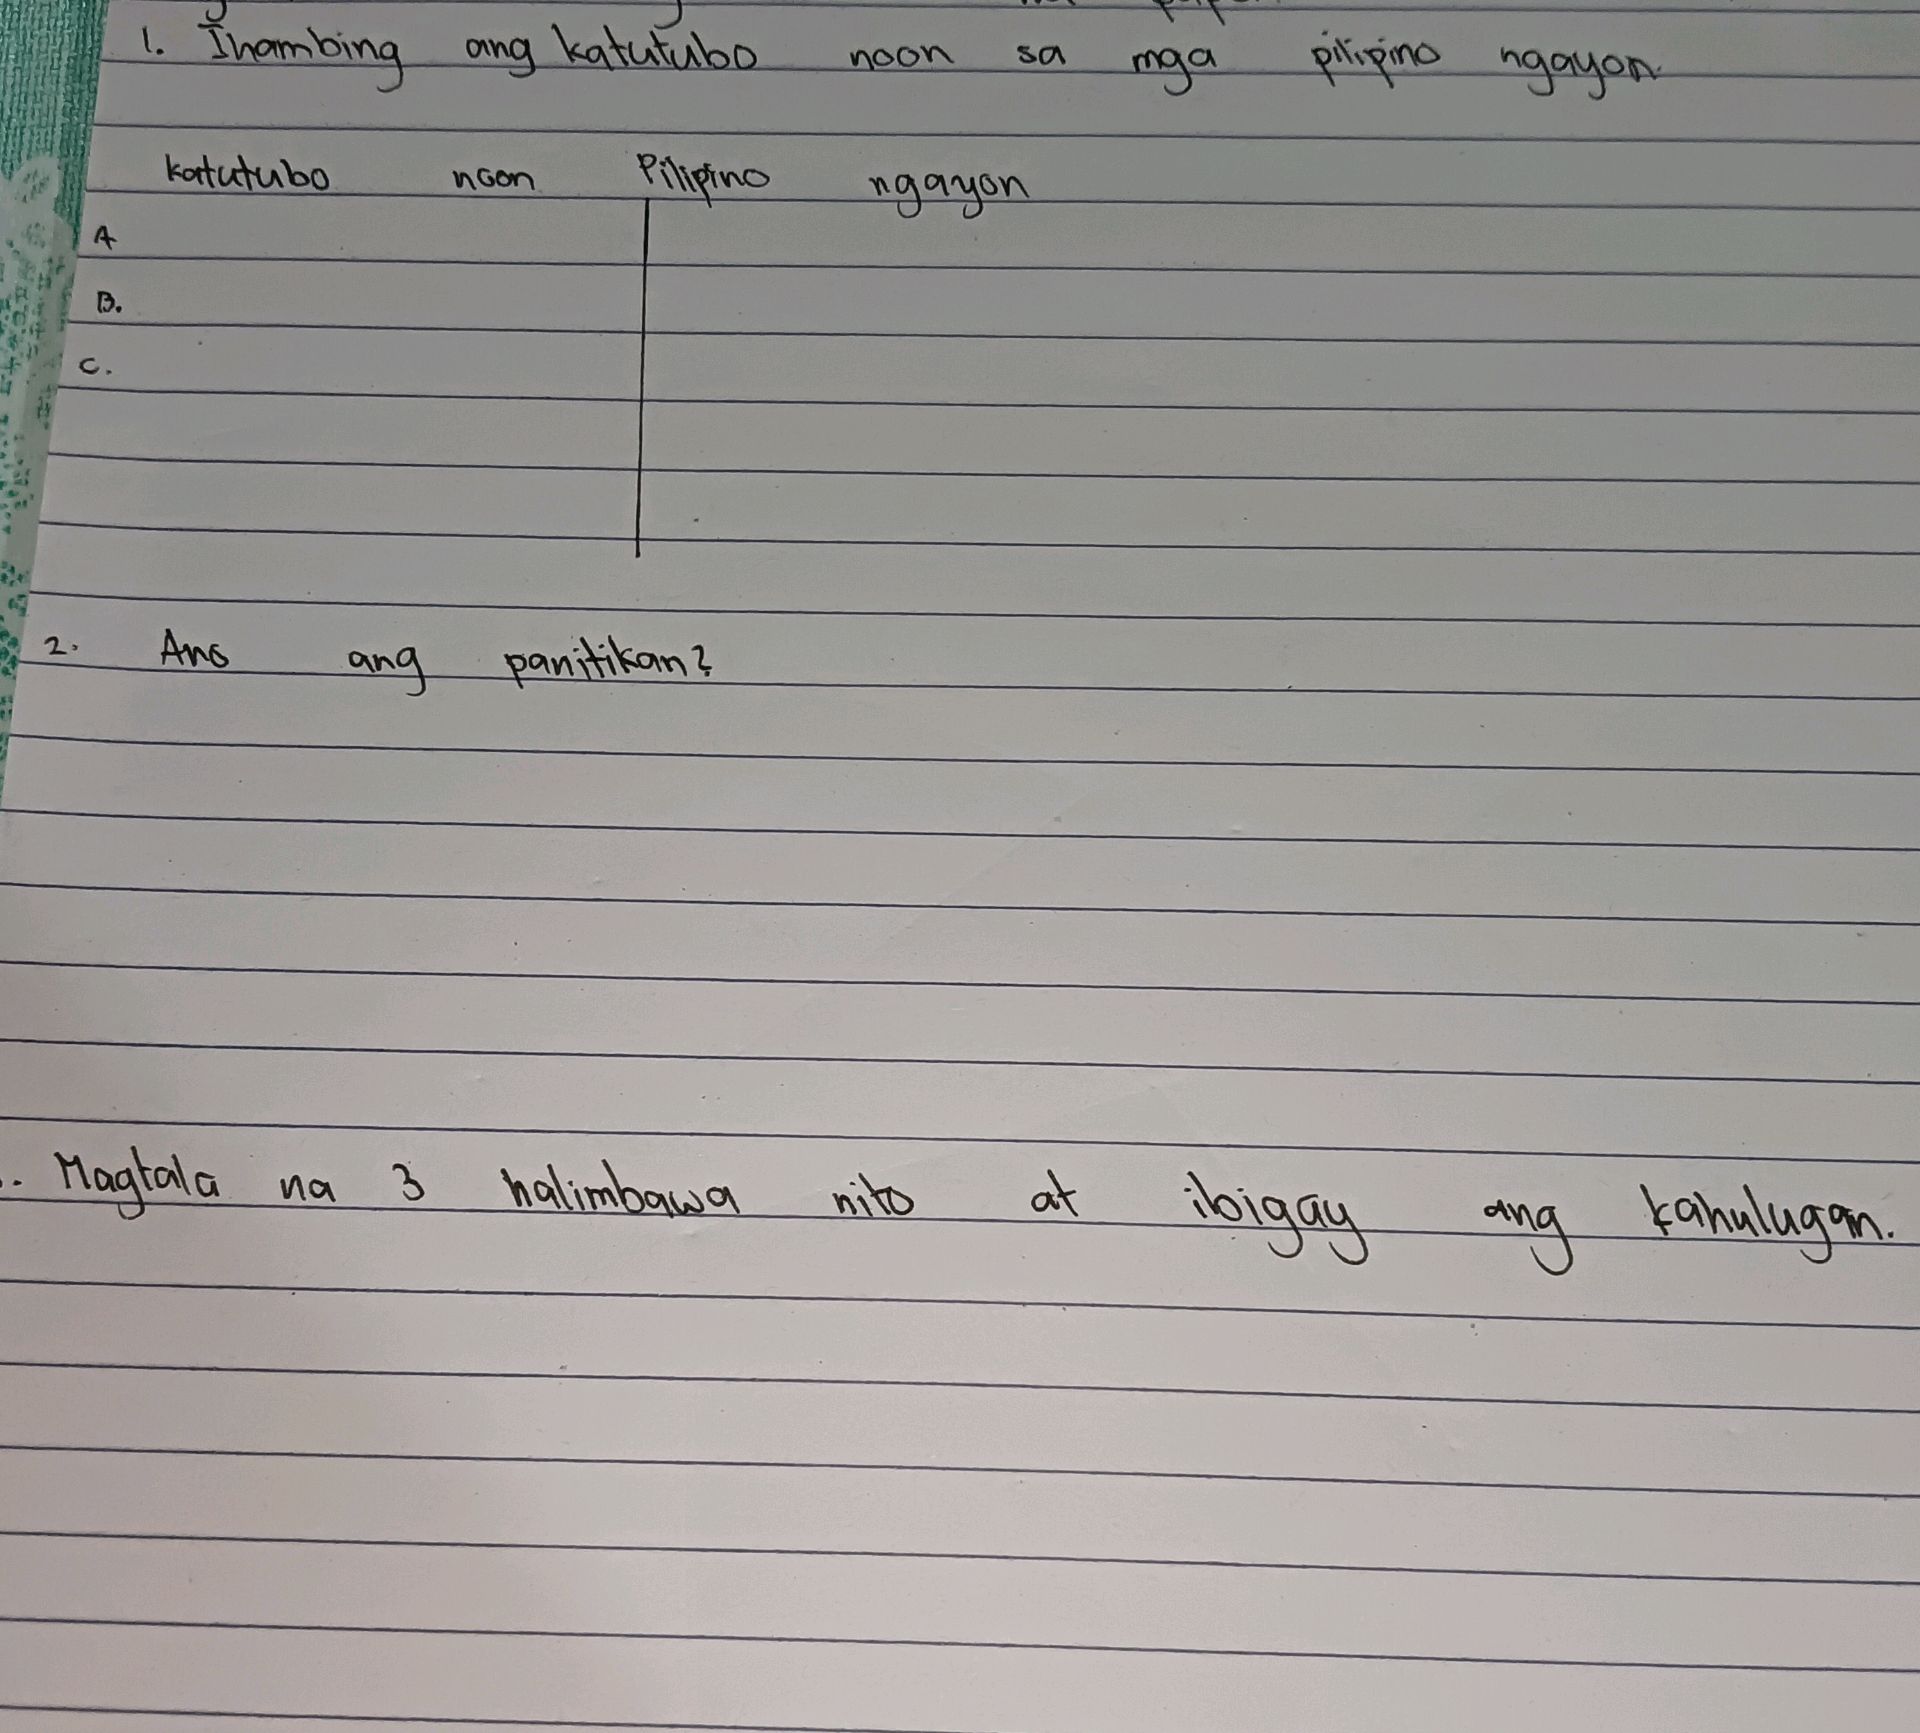 1. Ihambing ang katutubo noon sa mga pilipino ngayon.
katutubo noon Pilipino ngayon
A
B.
C.
2. Ano ang panitikan?
. Magtala na 3 halimbawa nito at ibigay ang kahulugan.